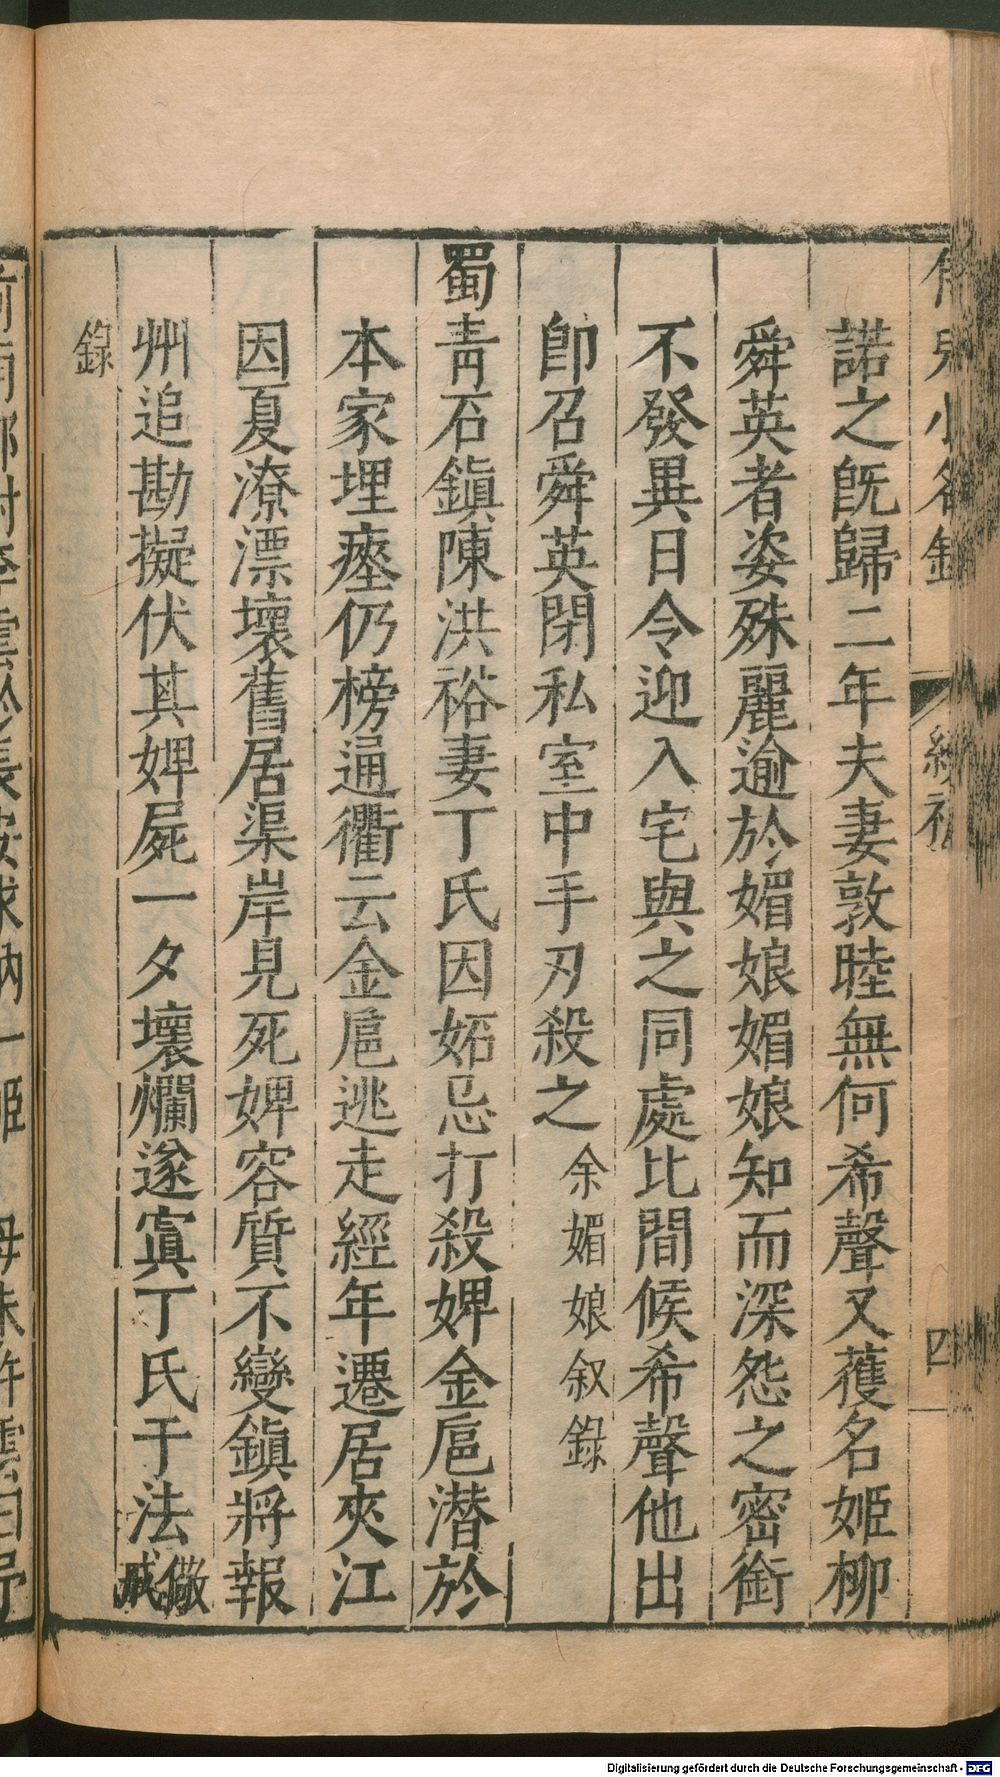 侍兒小名錄 續補 四
諾之旣歸二年夫妻敦睦無何希聲又䕶名姬柳
舜英者姿殊麗逾於媚娘媚娘知而深怨之密銜
不發異日令迎入宅與之同處比間候希聲他出
卽召舜英閉私室中手刃殺之余媚娘叙錄
蜀青石鎭陳洪裕妻丁氏因妬忌打殺婢金巵潜於
本家埋瘞仍榜通衢云金巵逃走經年遷居夾江
因夏潦漂壞舊居渠岸見死婢容質不變鎭將報
州追勘擬伏其婢屍一夕壞爛遂寘丁氏于法儆戒
錄
Digitalisierung gefördert durch die Deutsche Forschungsgemeinschaft - DFG